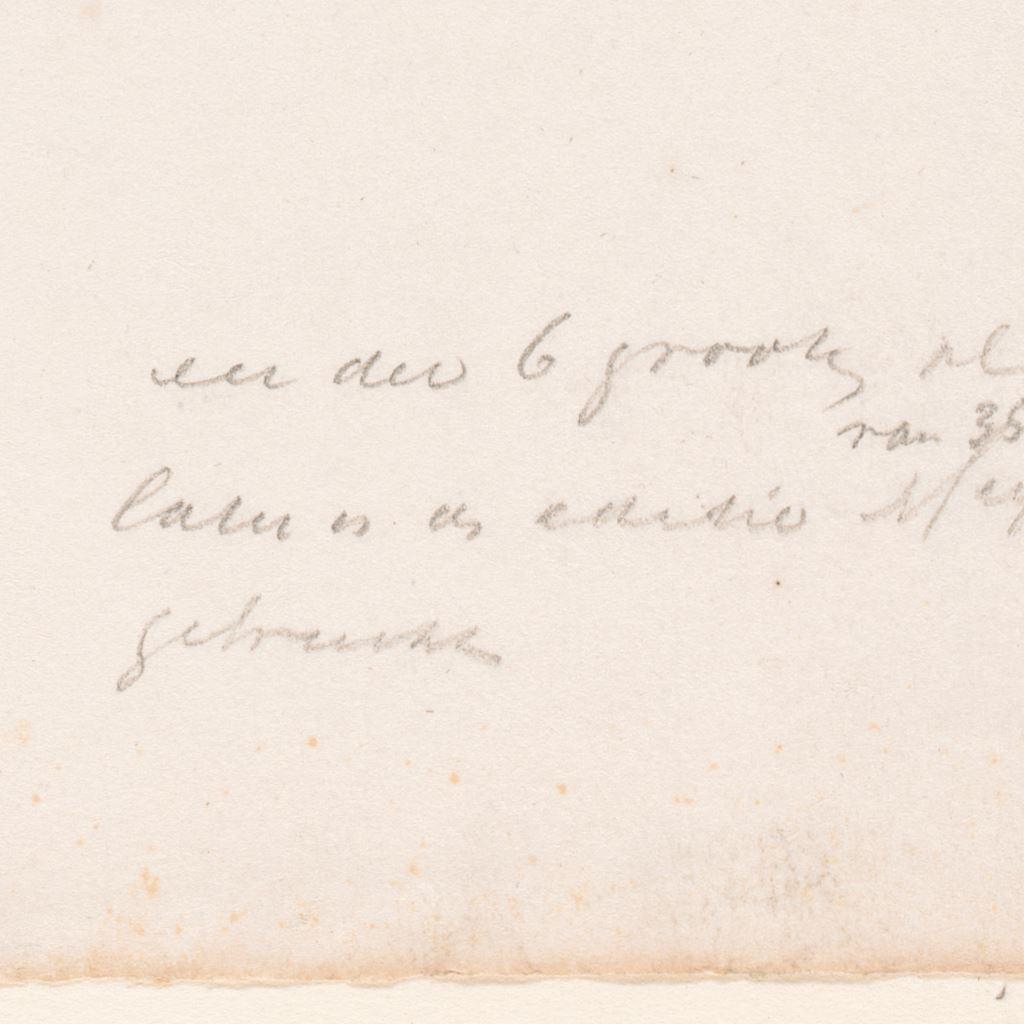 een der 6 groote
van 35
later is de editie
gebracht